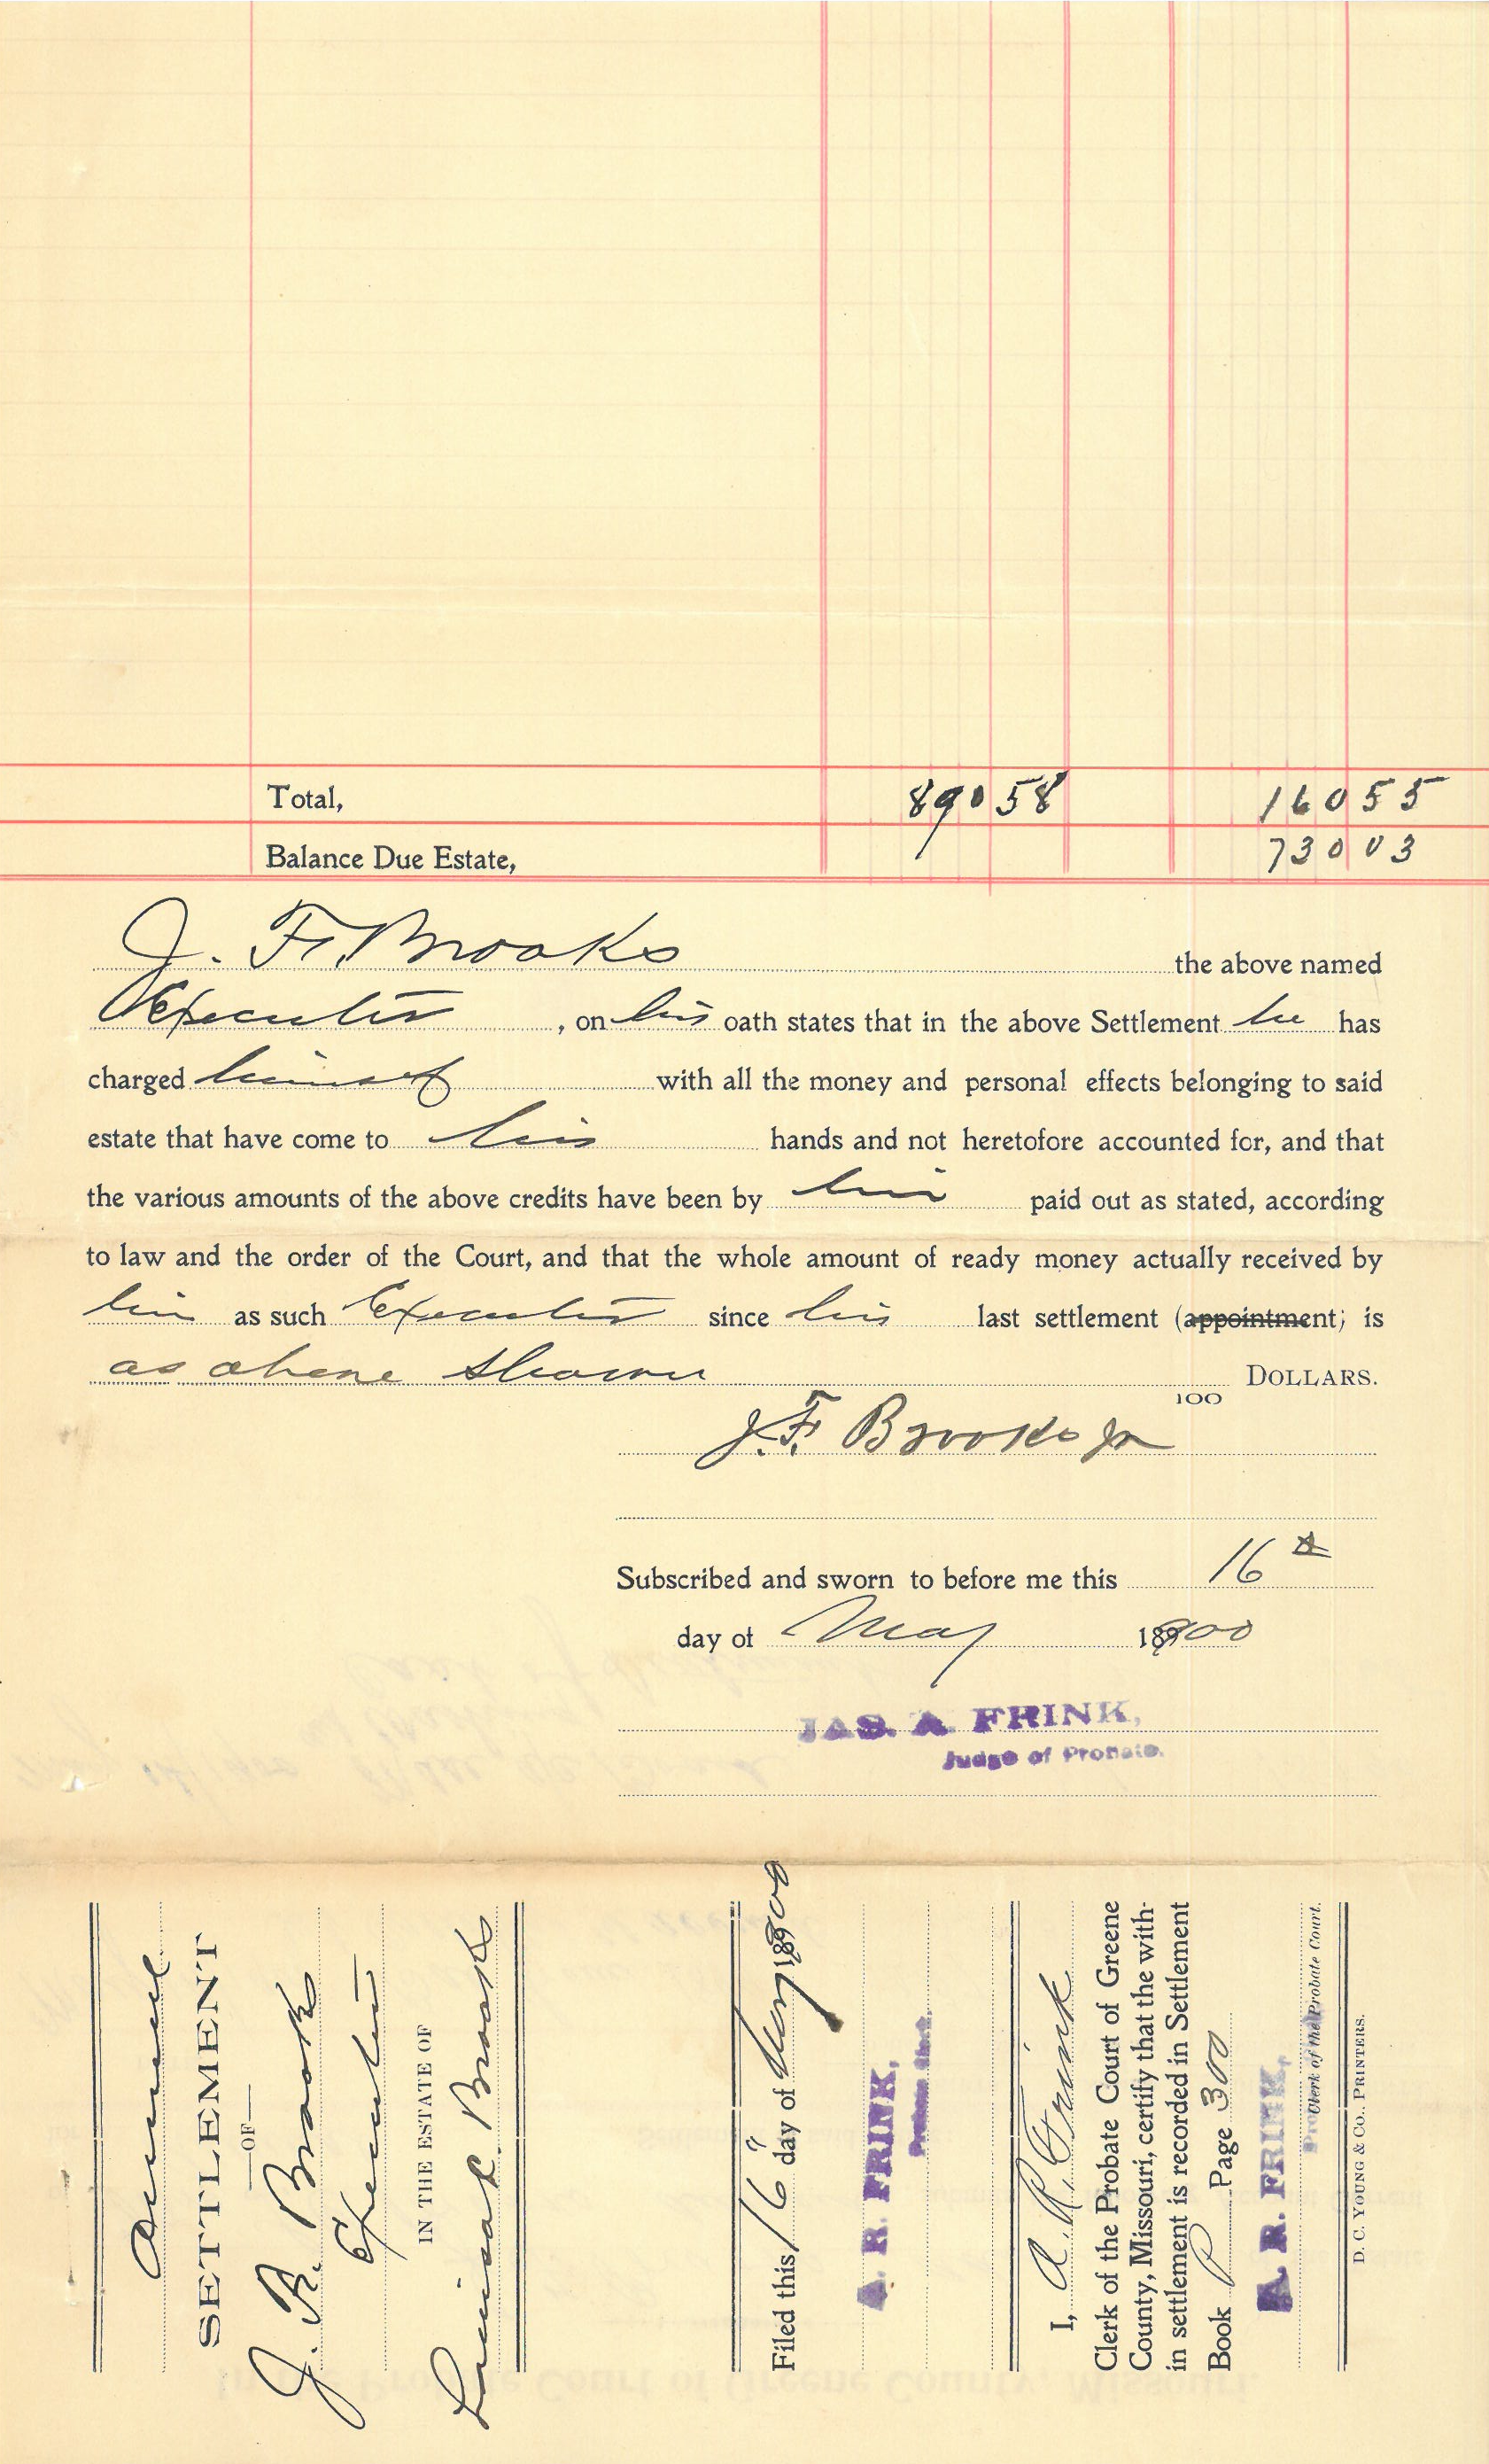 Total, 890 58 160 55
Balance Due Estate, 730 03
J. F. Brooks the above named
Executor, on his oath states that in the above Settlement he has
charged himself with all the money and personal effects belonging to said
estate that have come to his hands and not heretofore accounted for, and that
the various amounts of the above credits have been by him paid out as stated, according
to law and the order of the Court, and that the whole amount of ready money actually received by
him as such Executor since his last settlement (appointment) is
as above shown DOLLARS.
100
J. F. Brooks Jr
Subscribed and sworn to before me this 16th
day of May 1900
JAS. A. FRINK,
Judge of Probate.
Annual
SETTLEMENT
—OF—
J. F. Brooks
Executor
IN THE ESTATE OF
L. Brooks
Filed this 16" day of May 1900
A. R. FRINK,
Probate Clerk.
I, A. R. Frink
Clerk of the Probate Court of Greene
County, Missouri, certify that the with-
in settlement is recorded in Settlement
Book P Page 300
A. R. FRINK,
Clerk of the Probate Court.
D. C. YOUNG & CO., PRINTERS.